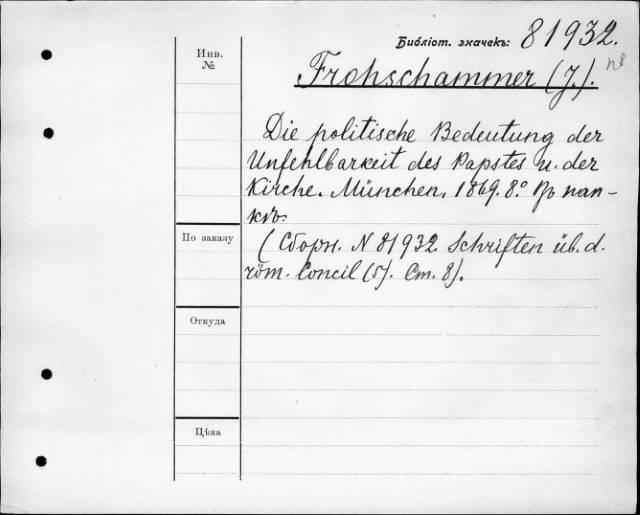 Библіот. значекъ: 81932.
n8
Инв.
№
Frohschammer (J.).
Die politische Bedeutung der
Unfehlbarkeit des Papstes u. der
Kirche. München, 1869. 8.° Въ пап-
кѣ.
По заказу
(Сборн. N 81932. Schriften üb. d.
röm. Concil (5). Ст. 8).
Откуда
Цѣна